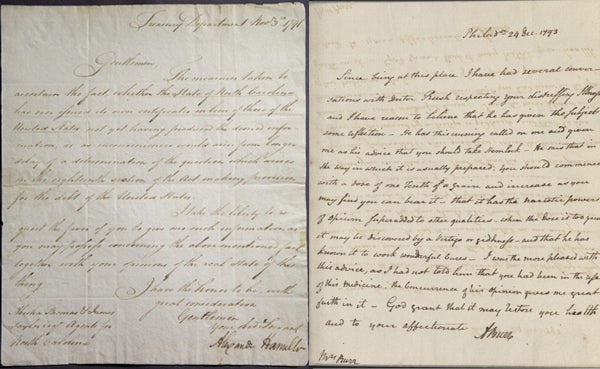 Treasury Department Novr 3d 1791
Gentlemen
The measures taken to
ascertain the fact, whether the State of North Carolina
has now issued its own certificates in lieu of those of the
United States, not yet having produced the desired infor
mation, or as circumstances permit any longer
delay of a determination of the question which arises
on the eighteenth section of the Act making provision
for the debt of the United States
I take the liberty to re
quest the favor of you to give me such information as
you may possess concerning the above mentioned fact
together with your opinions of the real state of the
thing
I have the honor to be with
great consideration
Gentlemen
Your Obed Servant
Alexander Hamilton
Thomas & James
Agents for
North Carolina
Philada 24 Dec. 1793
Since being at this place I have had several conver-
sations with Doctor Rush respecting your distressing Illness
and I have reason to believe that he has given the subject
some reflection - He has this evening called on me and given
me as his advice that you should take Hemlock. He says that in
the way in which it is usually prepared, you should commence
with a dose of one tenth of a grain and increase as you
may find you can bear it - that it has the narcotic powers
of Opium superadded to other qualities. When the Dose is too great
it may be discovered by a vertigo or gidiness - and that he has
known it to work wonderful cures - I was the more pleased with
this advice, as I had not told him that you had been in the use
of this medicine. The Concurrence of his Opinion gives me great
faith in it - God grant that it may restore your health
and to your affectionate
A Burr
Mrs Burr